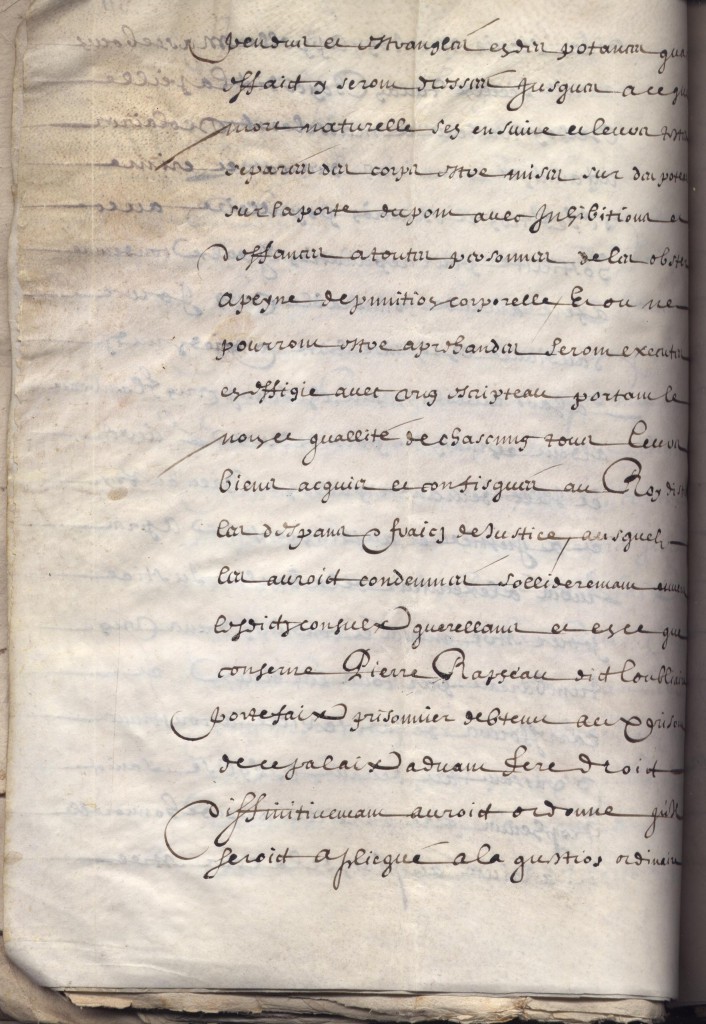 pendus et estranglés es des potances qua
effaict y seront dressés jusques a ce que
mort naturelle sen ensuive et leurs testes
separés des corps estre mises sur des poteaux
sur la porte du pont avec Inhibitions et
deffances a toutes personnes de les obster
a peyne de punition corporelle, Et ou ne
pourront estre aprehandés seront executés
en effigie avec ung escripteau portant le
nom et quallité de chascung tous leurs
biens acquis et confisqués au Roy
les despans & fraicz de Justice, ausquelz
les auroict condemnés sollideremant enver
lesdictz consulx querellans et en ce que
conserne Pierre Rapseau dict Loubliair
portefaix prisonnier debtenu aux prisons
de ce palaix advant fere droict
diffinitivemant auroict ordonne quil
seroict aplicqué a la question ordinaire